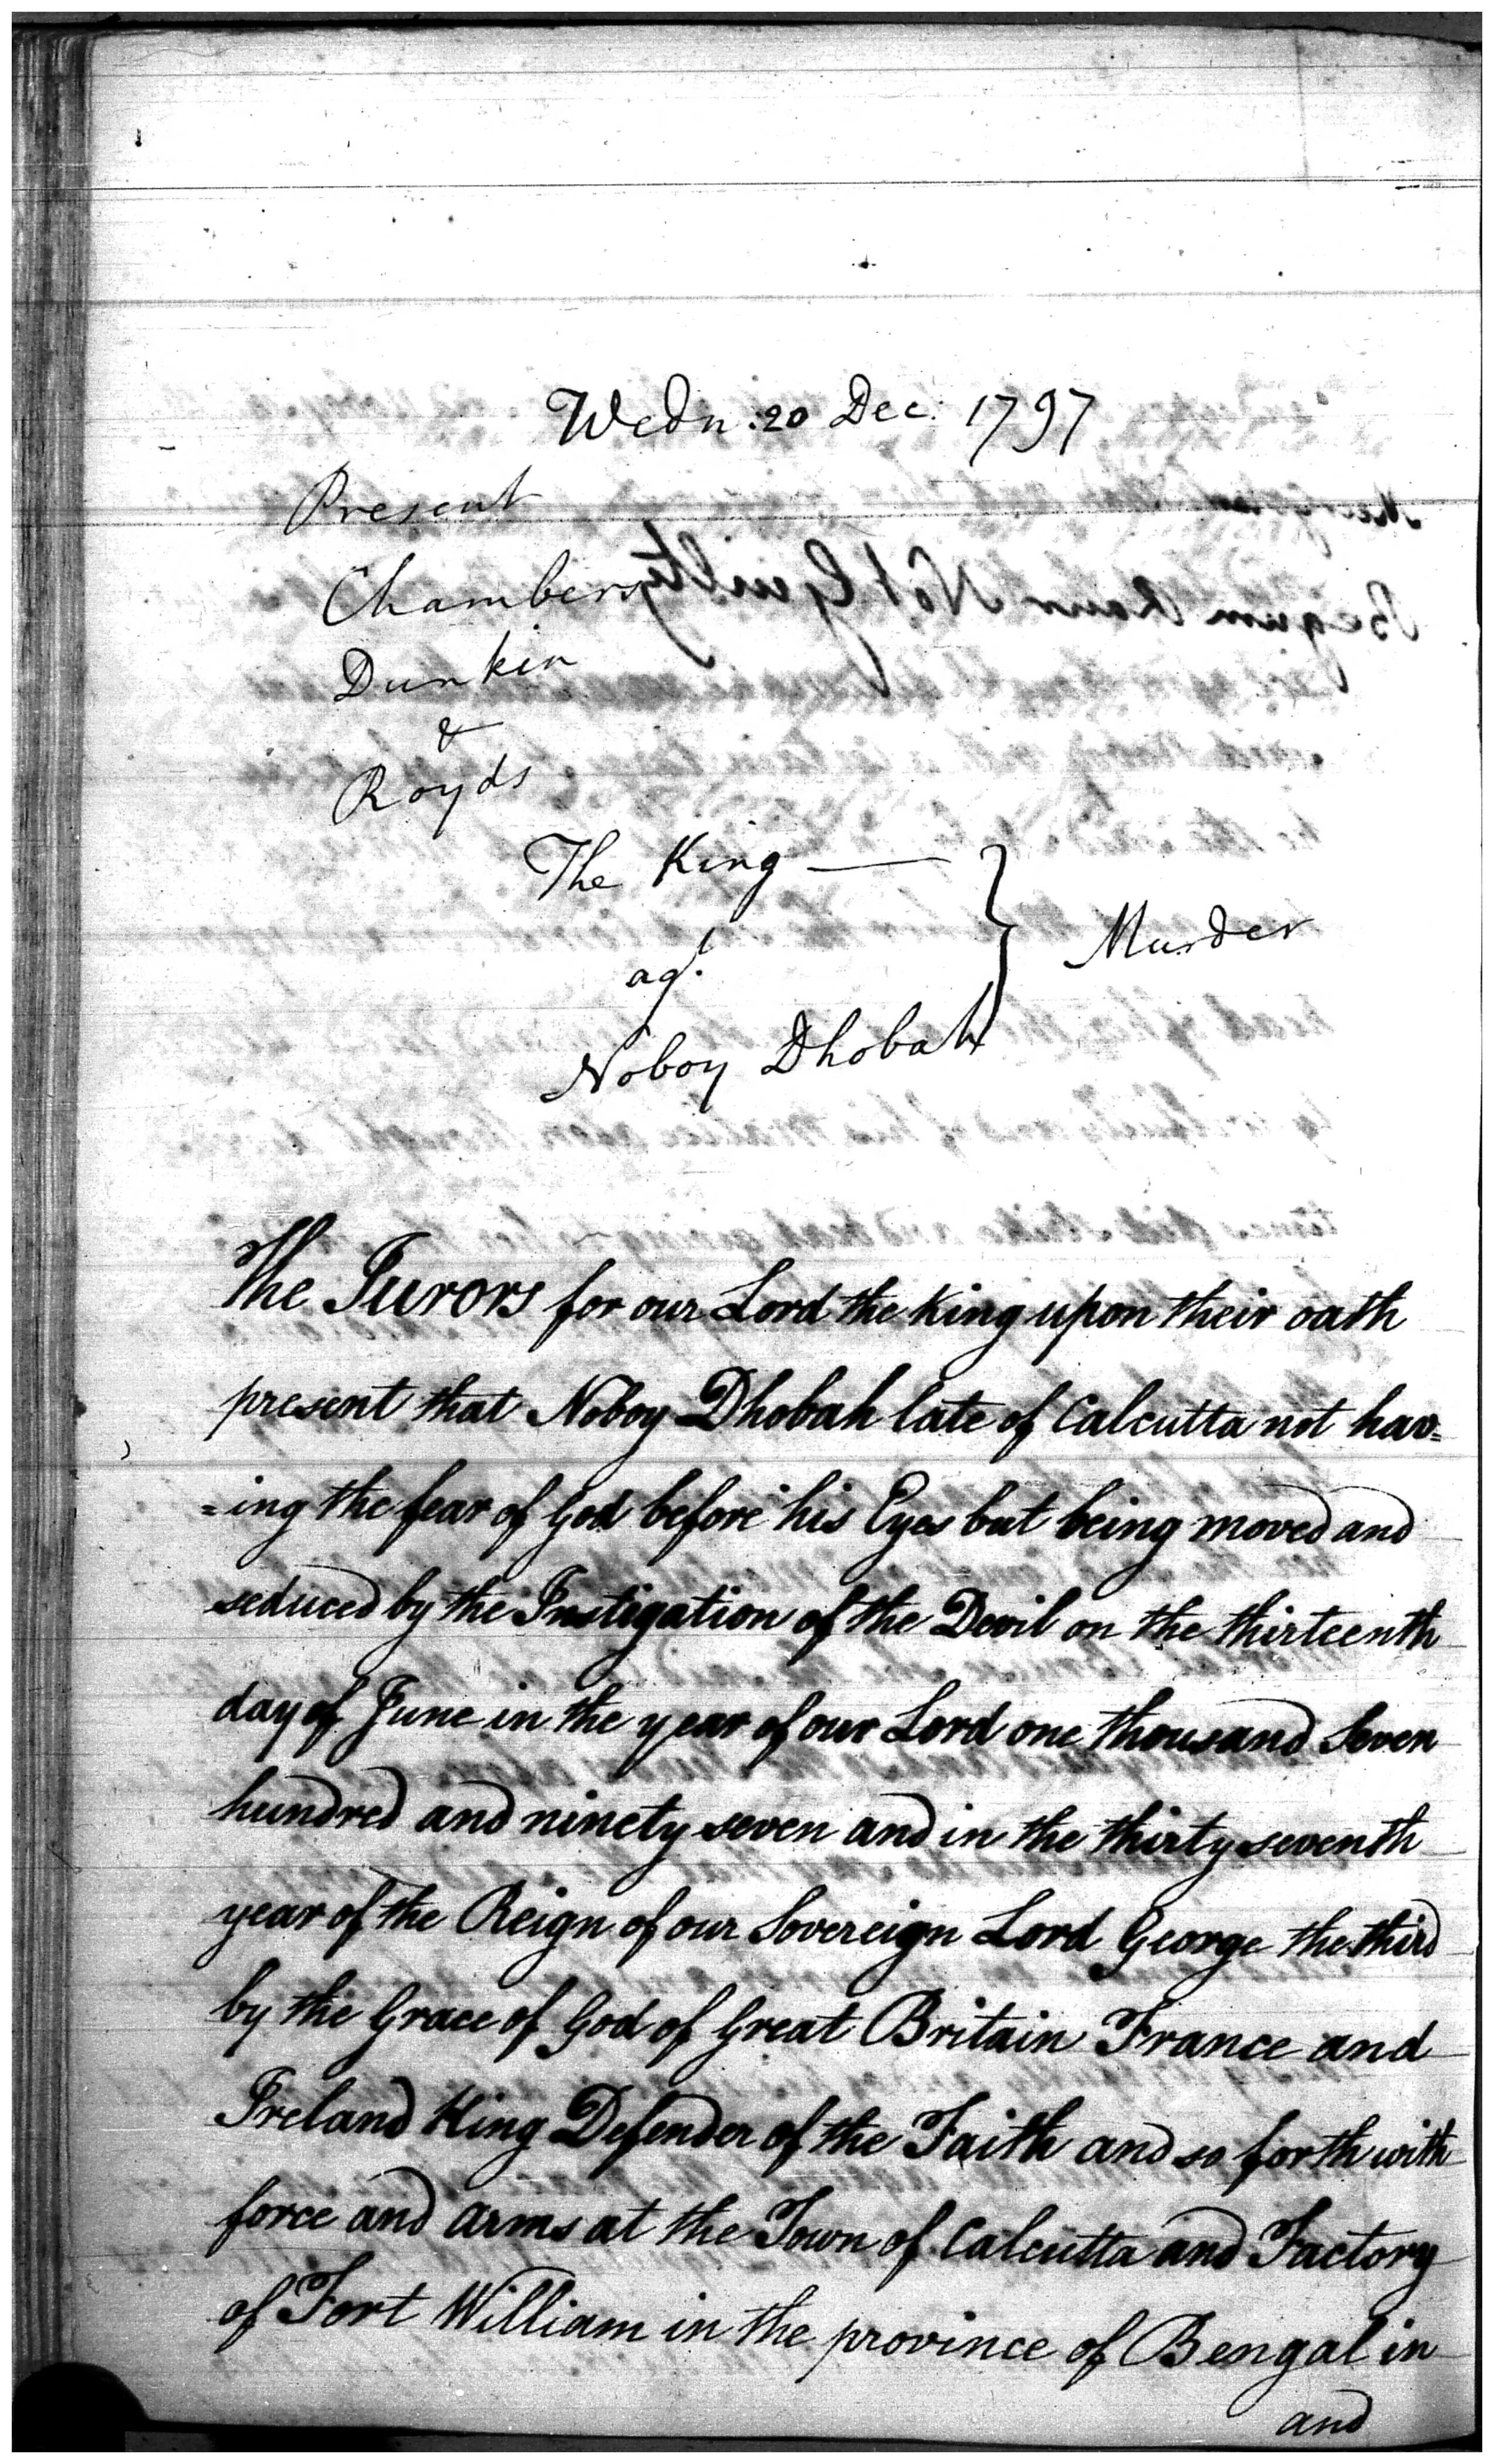 Wedn: 20 Dec: 1797
Present
Chambers
Dunkin
&
Royds
The King —
agt.
Noboy Dhobah
} Murder
The Jurors for our Lord the King upon their oath
present that Noboy Dhobah late of Calcutta not hav=
=ing the fear of God before his Eyes but being moved and
seduced by the Instigation of the Devil on the thirteenth
day of June in the year of our Lord one thousand Seven
hundred and ninety seven and in the thirty seventh
year of the Reign of our Sovereign Lord George the third
by the Grace of God of Great Britain France and
Ireland King Defender of the Faith and so forth with
force and arms at the Town of Calcutta and Factory
of Fort William in the province of Bengal in
and